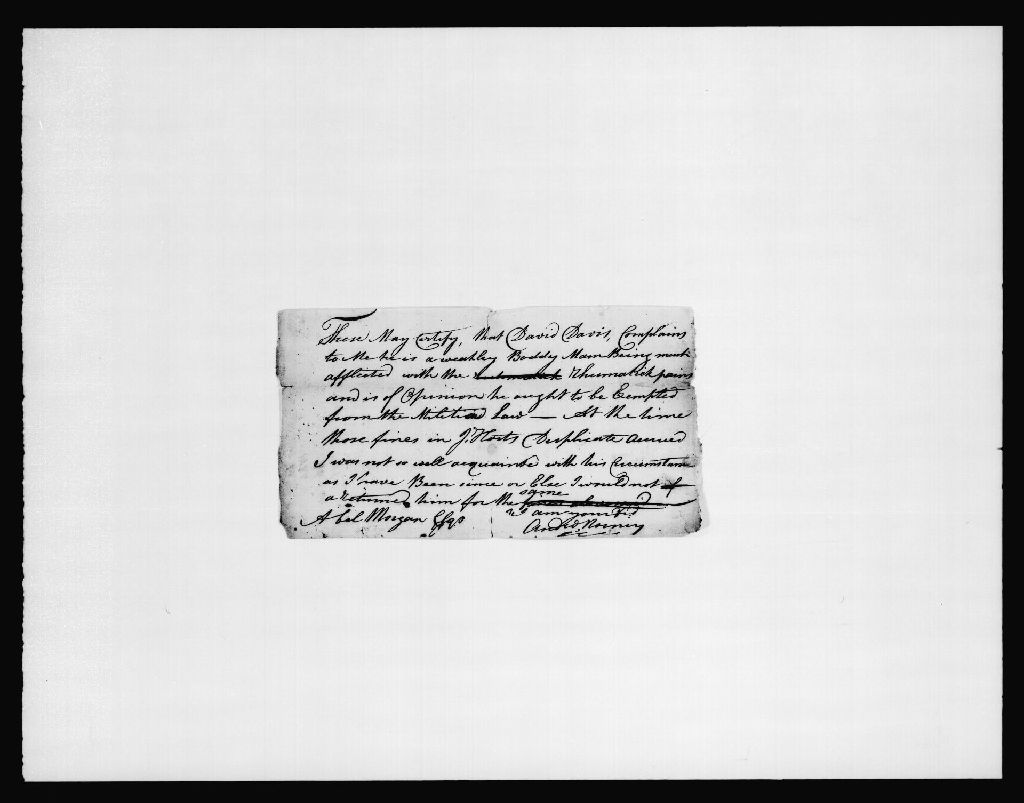 These May Certify, that David Davis, Complains
to Me he is a weakly Boddy Man Being much
afflicted with the rhumatick pains
and is of Opinion he ought to be Exempted
from the Militia Law — At the time
those fines in Duplicate accrued
I was not so well acquainted with his Circumstance
as I have Been since or Else I would not
a returned him for the same
Abel Morgan Esqr